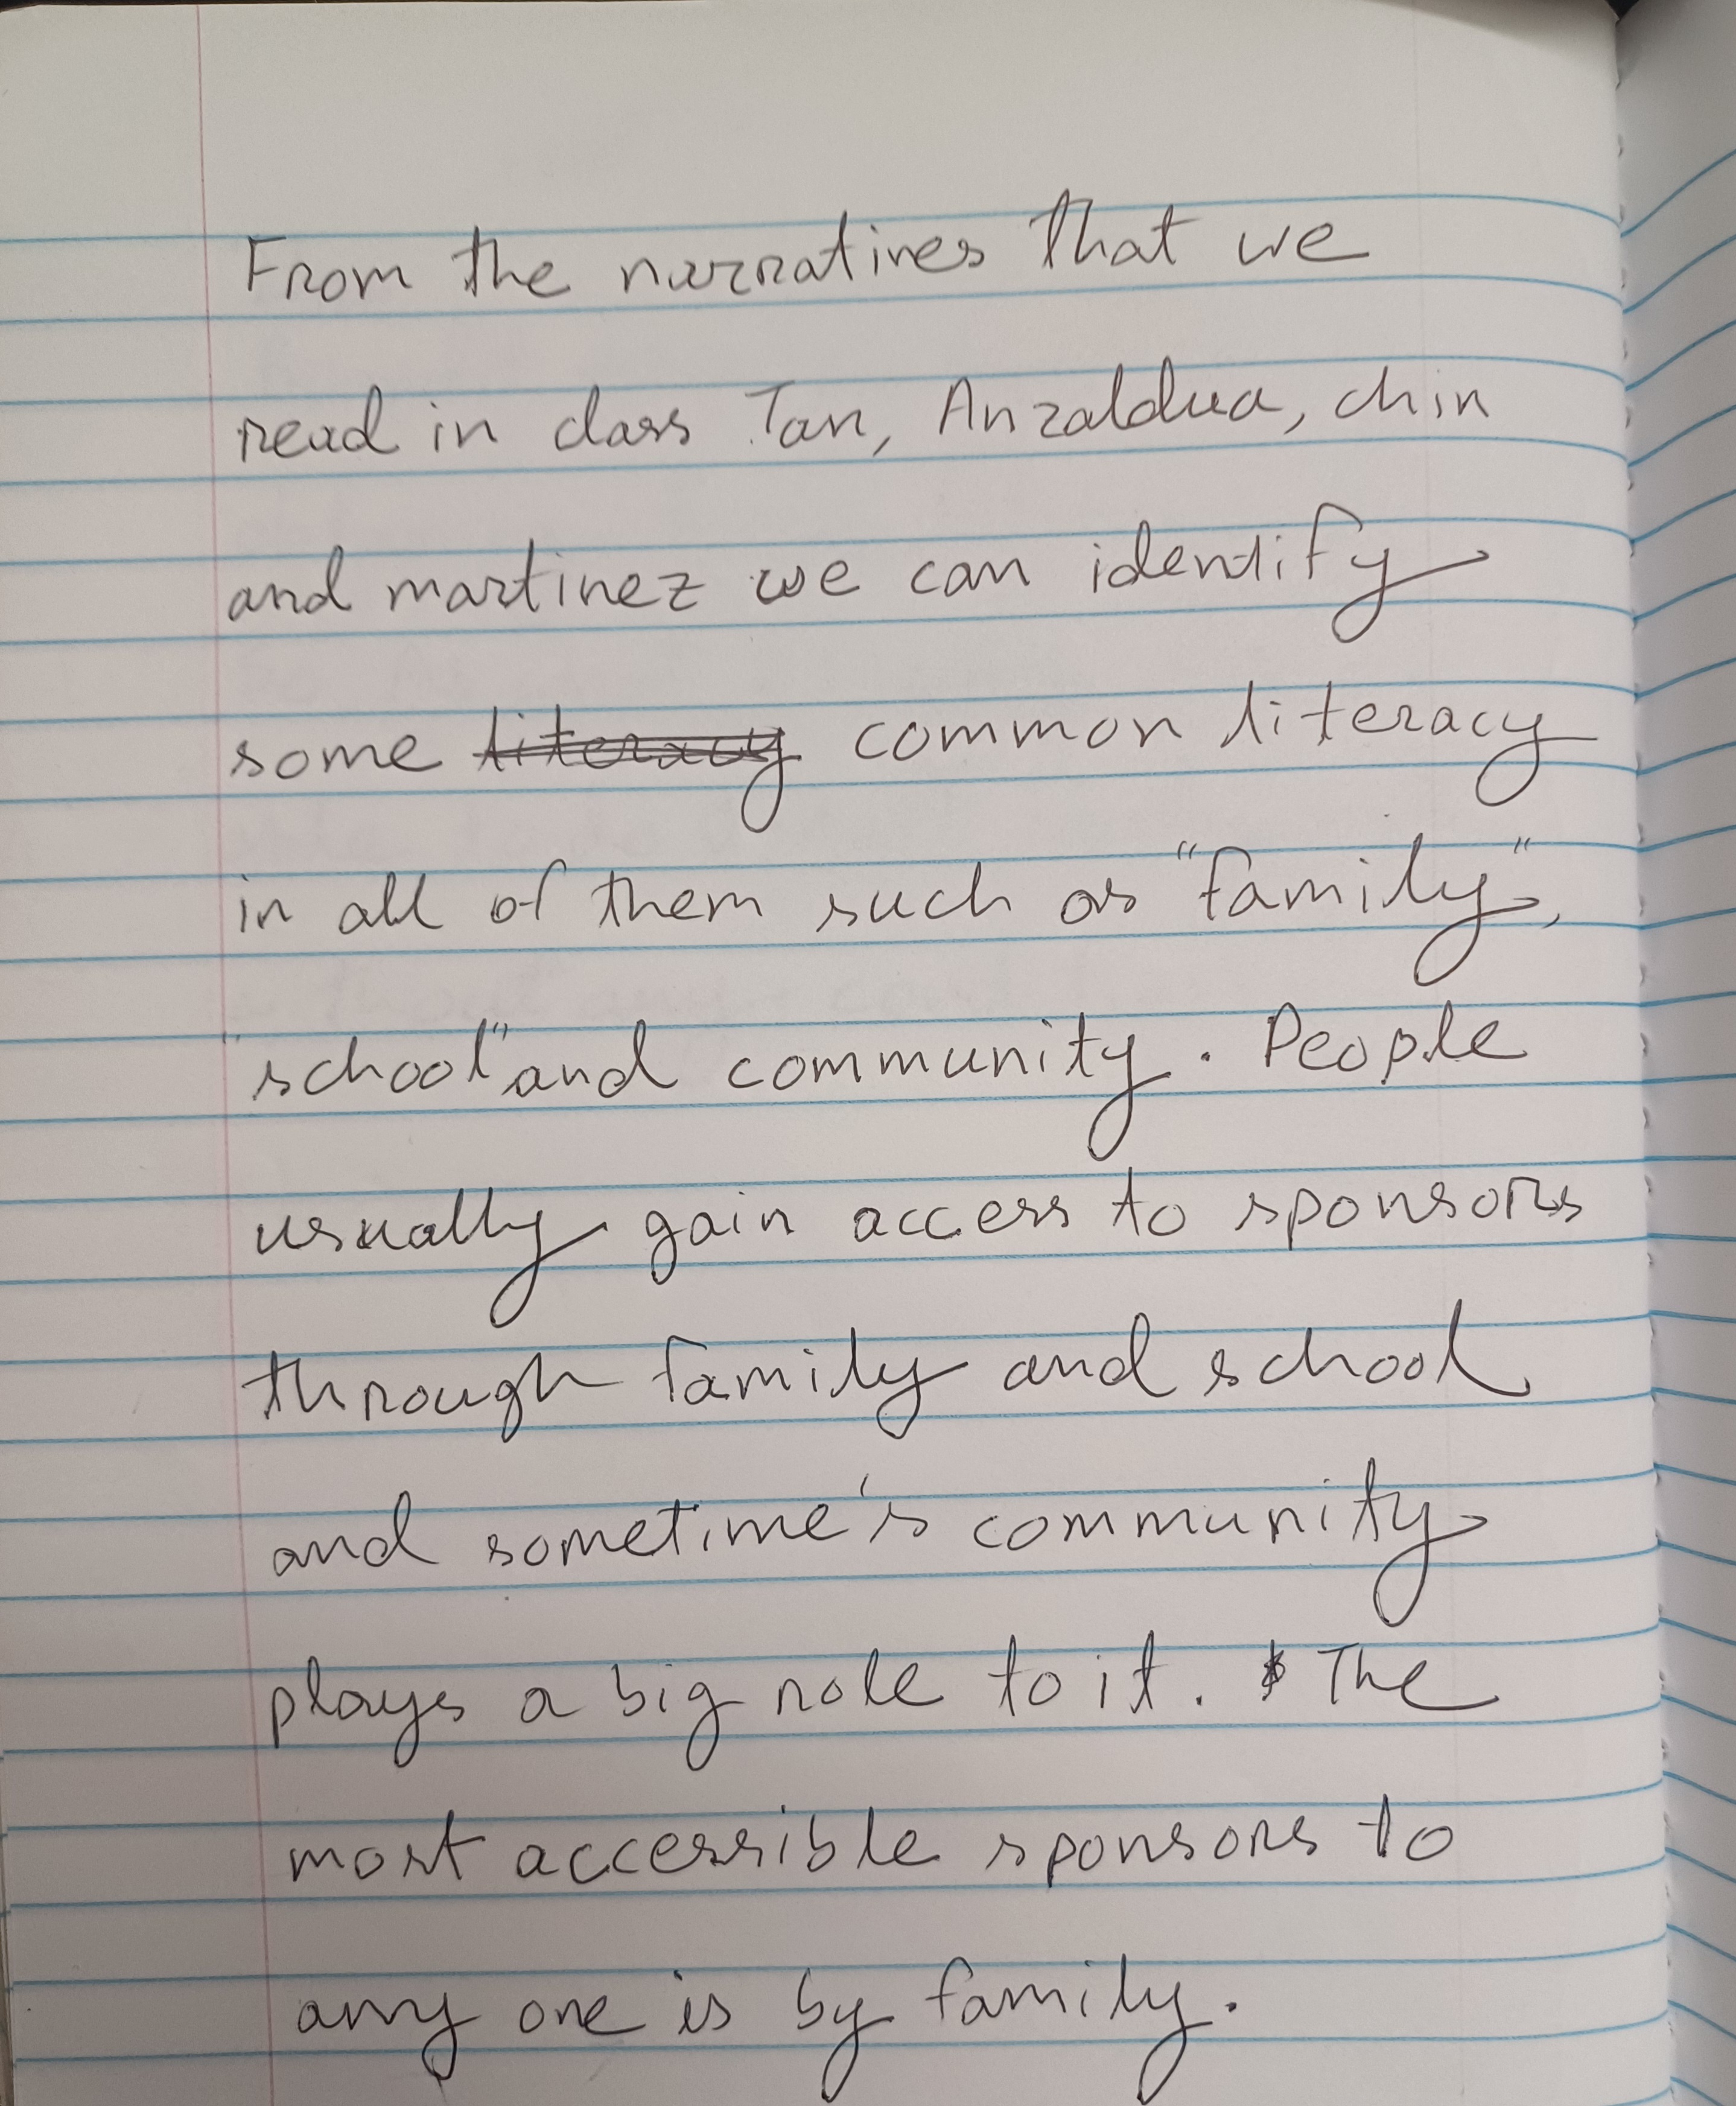 From the narratives that we
read in class Tan, Anzaldua, chin
and martinez we can identify
some literacy common literacy
in all of them such as "family",
"school" and community. People
usually gain access to sponsors
through family and school
and sometime's community
plays a big role to it. The
most accessible sponsors to
any one is by family.